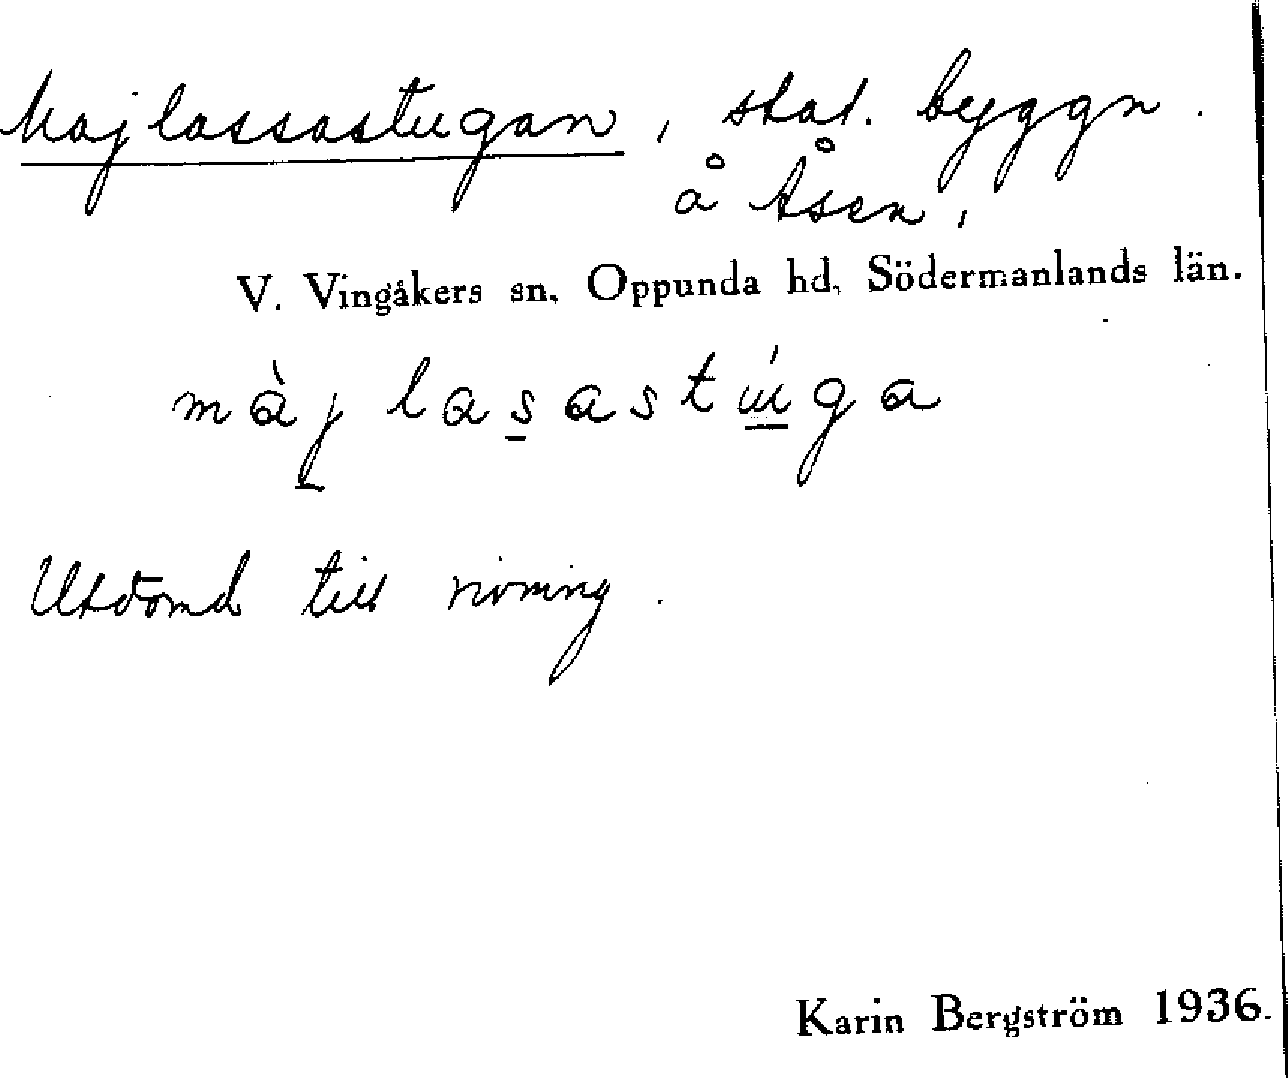 Majlassastugan, skat. byggn.
å Åsen,
V. Vingåkers sn. Oppunda hd, Södermanlands län.
màj lasastúga
Utdömd till rivning.
Karin Bergström 1936.